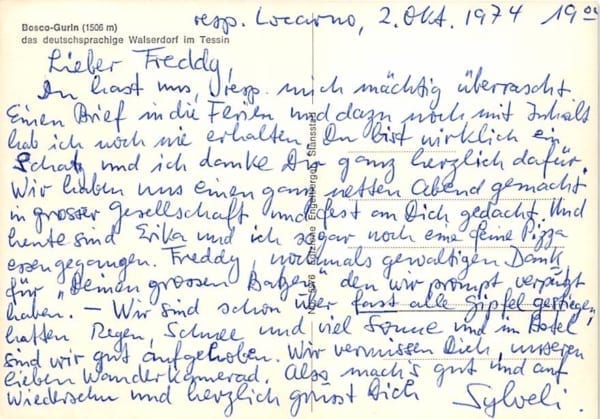 Bosco-Gurin (1506 m)
das deutschsprachige Walserdorf im Tessin
resp. Locarno, 2. Okt. 1974 19⁰⁰
Lieber Freddy,
Du hast uns, resp. mich mächtig überrascht.
Einen Brief in die Ferien und dazu noch mit Inhalt
hab ich noch nie erhalten. Du bist wirklich ein
Schatz und ich danke Dir ganz herzlich dafür.
Wir haben uns einen ganz netten Abend gemacht
in grosser Gesellschaft und fest an Dich gedacht. Und
heute sind Erika und ich sogar noch eine feine Pizza
essengegangen. Freddy, nochmals gewaltigen Dank
für „Deinen grossen Batzen" den wir prompt verputzt
haben. – Wir sind schon über fast alle Gipfel gestiegen,
hatten Regen, Schnee und viel Sonne und im Hotel
sind wir gut aufgehoben. Wir vermissen Dich, unseren
lieben Wanderkamerad. Also mach's gut und auf
Wiedersehn und herzlich grüsst Dich Sylveli.
Engelberger, Stansstad